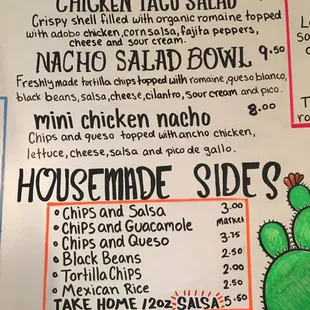 CHICKEN TACO SALAD
Crispy shell filled with organic romaine topped
with adobo chicken, corn salsa, fajita peppers,
cheese and sour cream.
NACHO SALAD BOWL 9.50
Freshly made tortilla chips topped with romaine, queso blanco,
black beans, salsa, cheese, cilantro, sour cream and pico.
mini chicken nacho 8.00
Chips and queso topped with ancho chicken,
lettuce, cheese, salsa and pico de gallo.
HOUSEMADE SIDES
• Chips and Salsa 3.00
• Chips and Guacamole market
• Chips and Queso 3.75
• Black Beans 2.50
• Tortilla Chips 2.00
• Mexican Rice 2.50
TAKE HOME 12oz SALSA 5.50